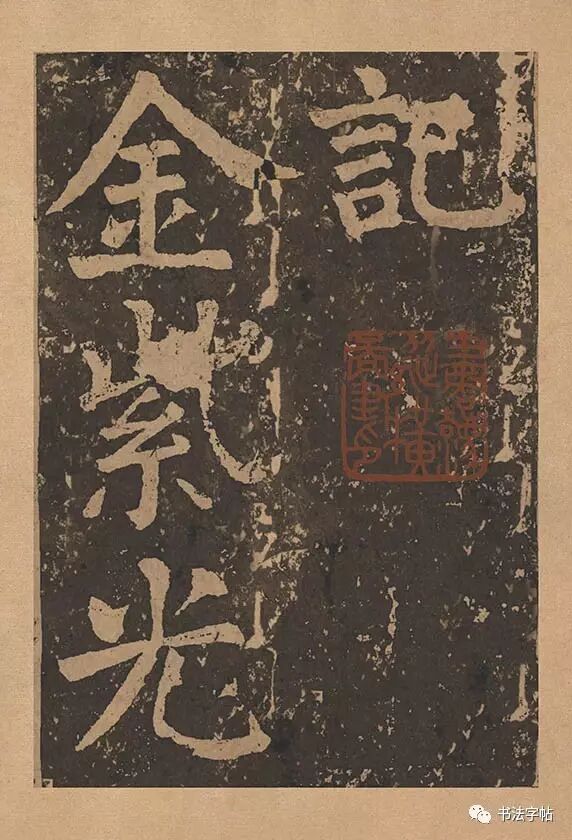 記
金紫光
书法字帖